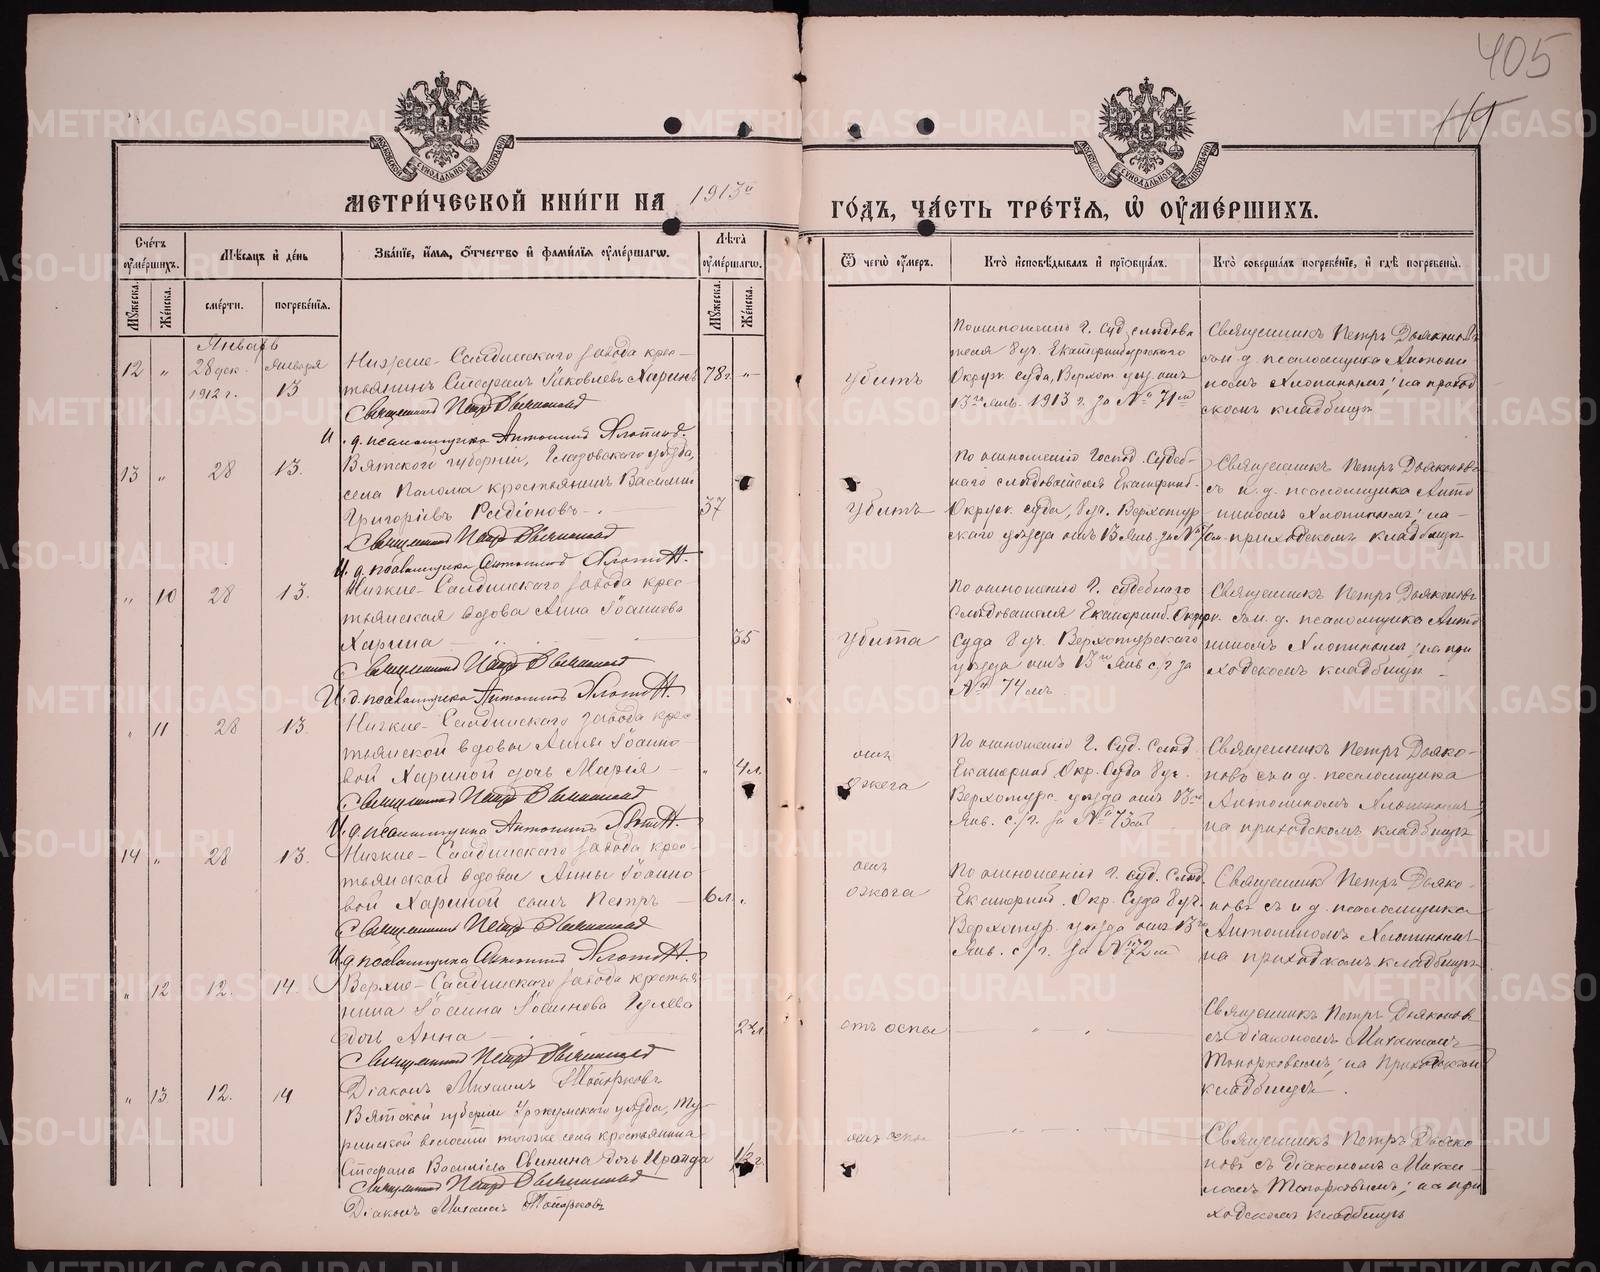 405
115
МЕТРИЧЕСКОЙ КНИГИ НА 1913й ГОДЪ, ЧАСТЬ ТРЕТІЯ, Ѿ ОУМЕРШИХЪ.
Счетъ оумершихъ.
Мѣсяцъ и день
Званіе, имя, отчество и фамилія оумершагѡ.
Лѣта оумершагѡ.
Ѿ чегѡ оумеръ.
Кто исповѣдывалъ и пріобщалъ.
Кто совершалъ погребеніе, и гдѣ погребены.
Мужеска. Женска.
смерти. погребенія.
Мужеска. Женска.
Январь
12 „ 28 дек. 1912 г. Января 13
Нижне-Салдинскаго завода крес-
тьянинъ Стефанъ Яковлевъ Харинъ 78 г. „
Священникъ Петръ Дьяконовъ
И. д. псаломщика Антонинъ Хлопинъ.
убитъ
По отношенію Г. Суд. слѣдова
теля 8 уч. Екатеринбургскаго
Округ. Суда, Верхот. уѣз. отъ
13го Янв. 1913 г. за № 71мъ
Священникъ Петръ Дьяконовъ
съ и. д. псаломщика Антони
номъ Хлопинымъ; на приход
скомъ кладбищѣ
13 „ 28 13.
Вятской губерніи, Глазовскаго уѣзда,
села Полома крестьянинъ Василій
Григоріевъ Родіоновъ 37
Священникъ Петръ Дьяконовъ
И. д. псаломщика Антонинъ Хлопинъ.
убитъ
По отношенію Господ. Судеб-
наго слѣдователя Екатеринб.
Округ. суда, 8 уч. Верхотур
скаго уѣзда отъ 13 Янв. за № 70мъ
Священникъ Петръ Дьяконовъ
съ и. д. псаломщика Анто
ниномъ Хлопинымъ; на
приходскомъ кладбищѣ
„ 10 28 13.
Нижне-Салдинскаго завода крес-
тьянская вдова Анна Іоаннова
Харина 35
Священникъ Петръ Дьяконовъ
И. д. псаломщика Антонинъ Хлопинъ.
убита
По отношенію Г. судебнаго
Слѣдователя Екатеринб. Округ.
Суда 8 уч. Верхотурскаго
уѣзда отъ 13го Янв с/г за
№ 74мъ.
Священникъ Петръ Дьяконовъ
съ и. д. псаломщика Анто
ниномъ Хлопинымъ; на при
ходскомъ кладбищѣ
„ 11 28 13.
Нижне-Салдинскаго завода крес-
тьянской вдовы Анны Іоанно-
вой Хариной дочь Марія „ 4 л.
Священникъ Петръ Дьяконовъ
И. д. псаломщика Антонинъ Хлопинъ.
отъ
ожега
По отношенію Г. Суд. Слѣд.
Екатеринб. Окр. Суда 8 уч.
Верхотур. уѣзда отъ 13го
Янв. с/г. за № 73мъ
Священникъ Петръ Дьяко-
новъ съ и д. псаломщика
Антониномъ Хлопинымъ,
на приходскомъ кладбищѣ
14 „ 28 13.
Нижне-Салдинскаго завода крес-
тьянской вдовы Анны Іоанно-
вой Хариной сынъ Петръ 6 л. „
Священникъ Петръ Дьяконовъ
И. д. псаломщика Антонинъ Хлопинъ.
отъ
ожога
По отношенію Г. суд. Слѣд.
Екатеринб. Окр. Суда 8 уч.
Верхотур. уѣзда отъ 13го
Янв. с/г. за № 72мъ
Священникъ Петръ Дьяко-
новъ съ и д. псаломщика
Антониномъ Хлопинымъ
на приходскомъ кладбищѣ
„ 12 12. 14.
Верхне-Салдинскаго завода крестья
нина Іоанна Іоаннова Гулева
дочь Анна 2 л.
Священникъ Петръ Дьяконовъ
Діаконъ Михаилъ Топорковъ
отъ оспы
Священникъ Петръ Дьяконовъ
съ діакономъ Михаиломъ
Топорковымъ; на Приходскомъ
кладбищѣ.
„ 13 12. 14
Вятской губерніи Уржумскаго уѣзда, Ту-
ринской волости того же села крестьянина
Стефана Васильева Овинина дочь Ираида
Священникъ Петръ Дьяконовъ
Діаконъ Михаилъ Топорковъ
отъ оспы
Священникъ Петръ Дьяко-
новъ съ діакономъ Михаи-
ломъ Топорковымъ; на при
ходскомъ кладбищѣ
METRIKI.GASO-URAL.RU